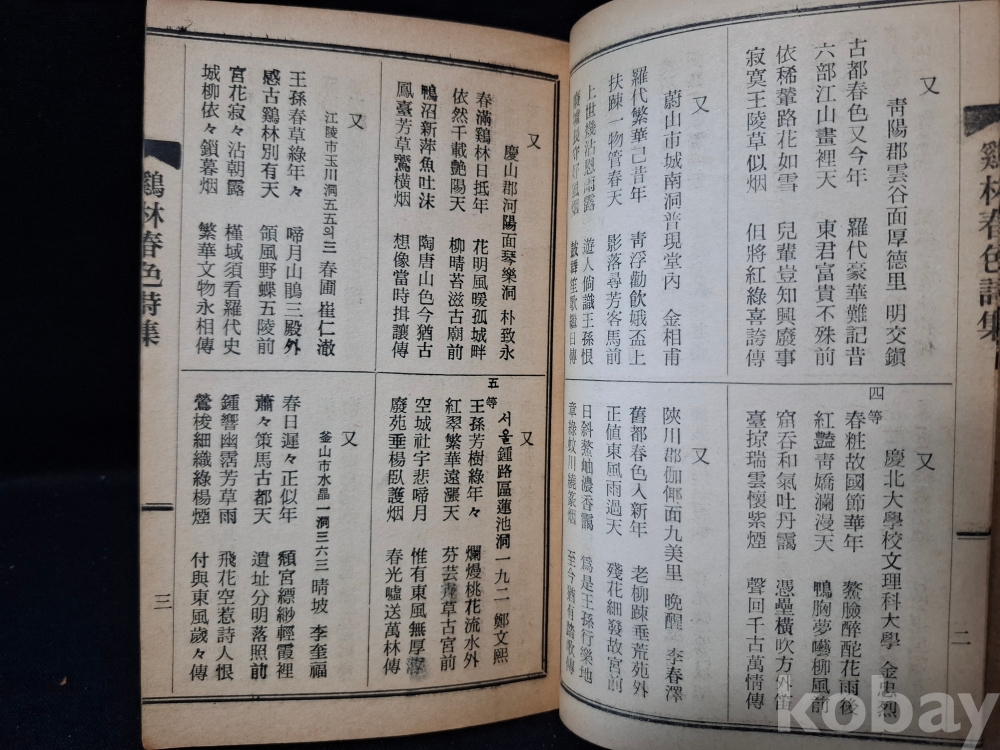 鷄林春色詩集
二
又
靑陽郡雲谷面厚德里 明交鎭
古都春色又今年 羅代豪華難記昔
六部江山畫裡天 東君富貴不殊前
依稀輦路花如雪 兒輩豈知興廢事
寂寞王陵草似烟 但將紅綠喜誇傳
又
蔚山市城南洞普現堂內 金相甫
羅代繁華已昔年 靑浮勸飮娥盃上
扶踈一物管春天 影落尋芳客馬前
上世幾沾恩雨露 遊人倘識王孫恨
長守好風烟 鼓舞笙歌繼日傳
四等
又
慶北大學校文理科大學 金忠烈
春粧故國節華年 鰲臉醉酡花雨後
紅豔靑嬌瀾漫天 鴨胸夢囈柳風前
窟吞和氣吐丹靄 憑壘橫吹方外笛
臺掠瑞雲懷紫煙 聲回千古萬情傳
又
陜川郡伽倻面九美里 晚醒 李春澤
舊都春色入新年 老柳踈垂荒苑外
正値東風雨過天 殘花細發故宮前
日斜鰲岫濃香靄 爲是王孫行樂地
章綠蚊川繞篆烟 至今猶有踏歌傳
又
慶山郡河陽面琴樂洞 朴致永
春滿鷄林日抵年 花明風暖孤城畔
依然千載艶陽天 柳晴苔滋古廟前
鴨沼新萍魚吐沫 陶唐山色今猶古
鳳臺芳草鶯橫烟 想像當時揖讓傳
又
江陵市玉川洞五五의三 春圃 崔仁澈
王孫春草綠年々 啼月山鵑三殿外
感古鷄林別有天 領風野蝶五陵前
宮花寂々沾朝露 槿域須看羅代史
城柳依々鎖暮烟 繁華文物永相傳
五等
又
서울鍾路區蓮池洞一九二 鄭文熙
王孫芳樹綠年々 爛熳桃花流水外
紅翠繁華遠灑天 芬芸靑草古宮前
空城社宇悲啼月 惟有東風無厚薄
廢苑垂楊臥護烟 春光噓送萬林傳
又
釜山市水晶一洞三六三 晴坡 李奎福
春日遲々正似年 頹宮縹緲輕霞裡
蕭々策馬古都天 遺址分明落照前
鍾響幽霑芳草雨 飛花空惹詩人恨
鶯梭細織綠楊煙 付與東風歲々傳
鷄林春色詩集
三
kobay